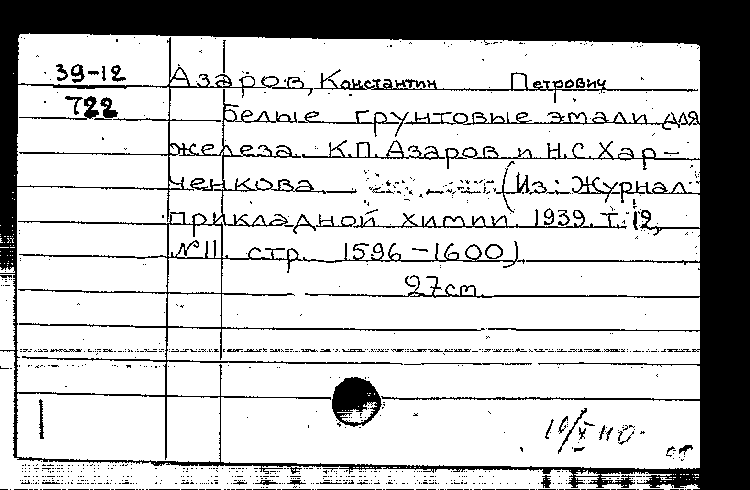 39-12
722
Азаров, Константин Петрович
Белые грунтовые эмали для
железа. К.П. Азаров и Н.С. Хар-
ченкова. (Из: Журнал
прикладной химии. 1939. т. 12,
№ 11. стр. 1596-1600).
27 cm.